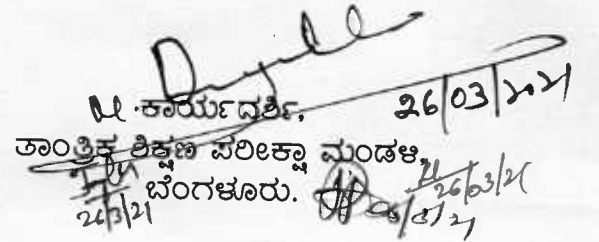 ಕಾರ್ಯದರ್ಶಿ, 26/03/2021
ತಾಂತ್ರಿಕ ಶಿಕ್ಷಣ ಪರೀಕ್ಷಾ ಮಂಡಳಿ,
ಬೆಂಗಳೂರು. 26/03/21
26/3/21